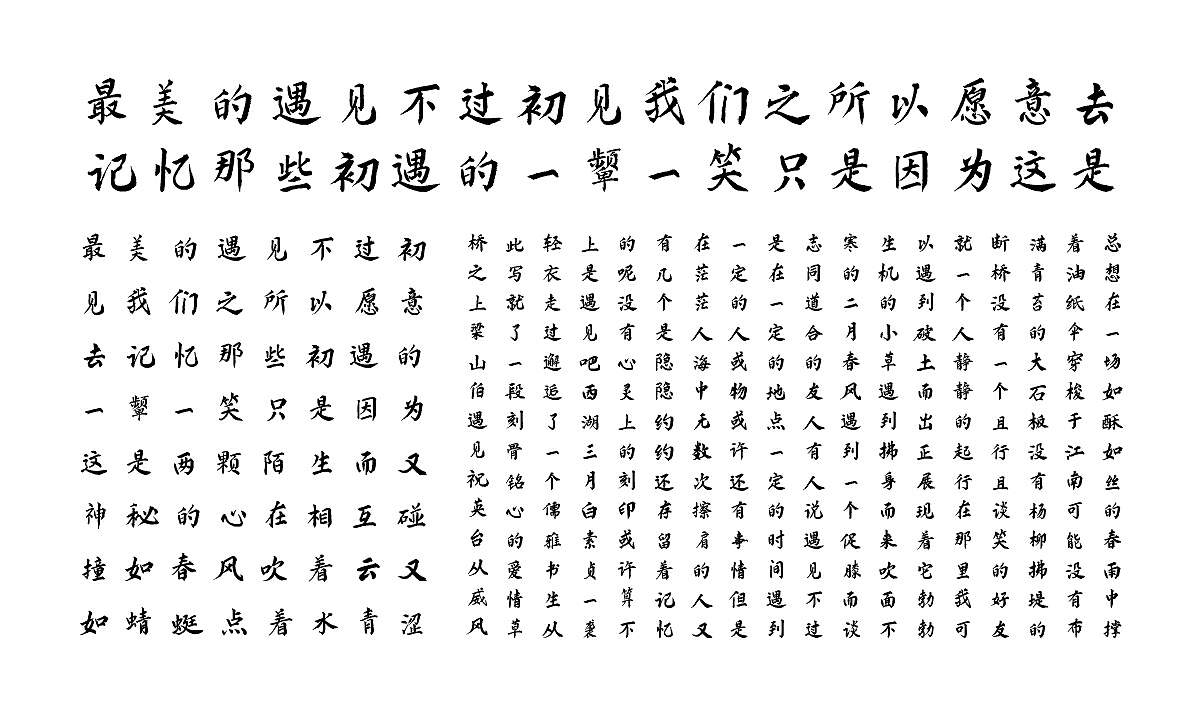 最美的遇见不过初见我们之所以愿意去
记忆那些初遇的一颦一笑只是因为这是
最美的遇见不过初
见我们之所以愿意
去记忆那些初遇的
一颦一笑只是因为
这是两颗陌生而又
神秘的心在相互碰
撞如春风吹着云又
如蜻蜓点着水青涩
总想在一场如酥如丝的春雨中撑
着油纸伞穿梭于江南可能没有布
满青苔的大石极没有杨柳拂堤的
断桥没有一个且行且谈笑的好友
就一个人静静的起行在那里我可
以遇到破土而出正展现着它勃勃
生机的小草遇到拂身而来吹面不
寒的二月春风遇到一个促膝而谈
志同道合的友人有人说遇见不过
是在一定的地点一定的时间遇到
一定的人或物或许还有事情但是
在茫茫人海中无数次擦肩的人又
有几个是隐隐约约还存留着记忆
的呢没有心灵上的刻印或许算不
上是遇见吧西湖三月白素贞一袭
轻衣走过邂逅了一个儒雅书生从
此写就了一段刻骨铭心的爱情草
桥之上梁山伯遇见祝英台从威风